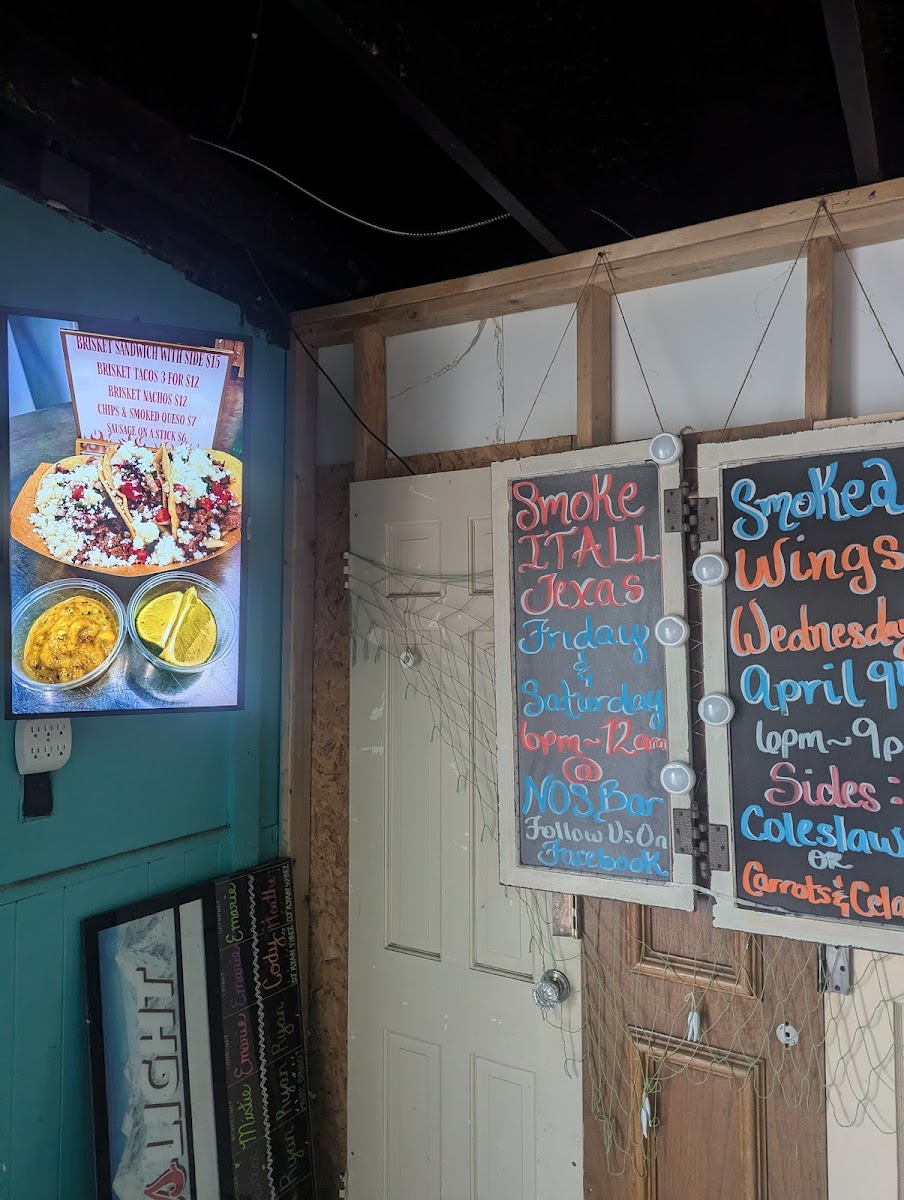 BRISKET SANDWICH WITH SIDE $15
BRISKET TACOS 3 FOR $12
BRISKET NACHOS $12
CHIPS & SMOKED QUESO $7
SAUSAGE ON A STICK $6
Smoke
IT ALL
Texas
Friday
&
Saturday
6pm~12am
@
NOS Bar
Follow Us On
Facebook
Smoked
Wings
Wednesday
April 9
6pm~9p
Sides:
Coleslaw
OR
Carrots &
LIGHT
Emarie
Emavie
Emarie
Mistie
Cody
Heath
Ryan
Ryan
Ryan
Ryan